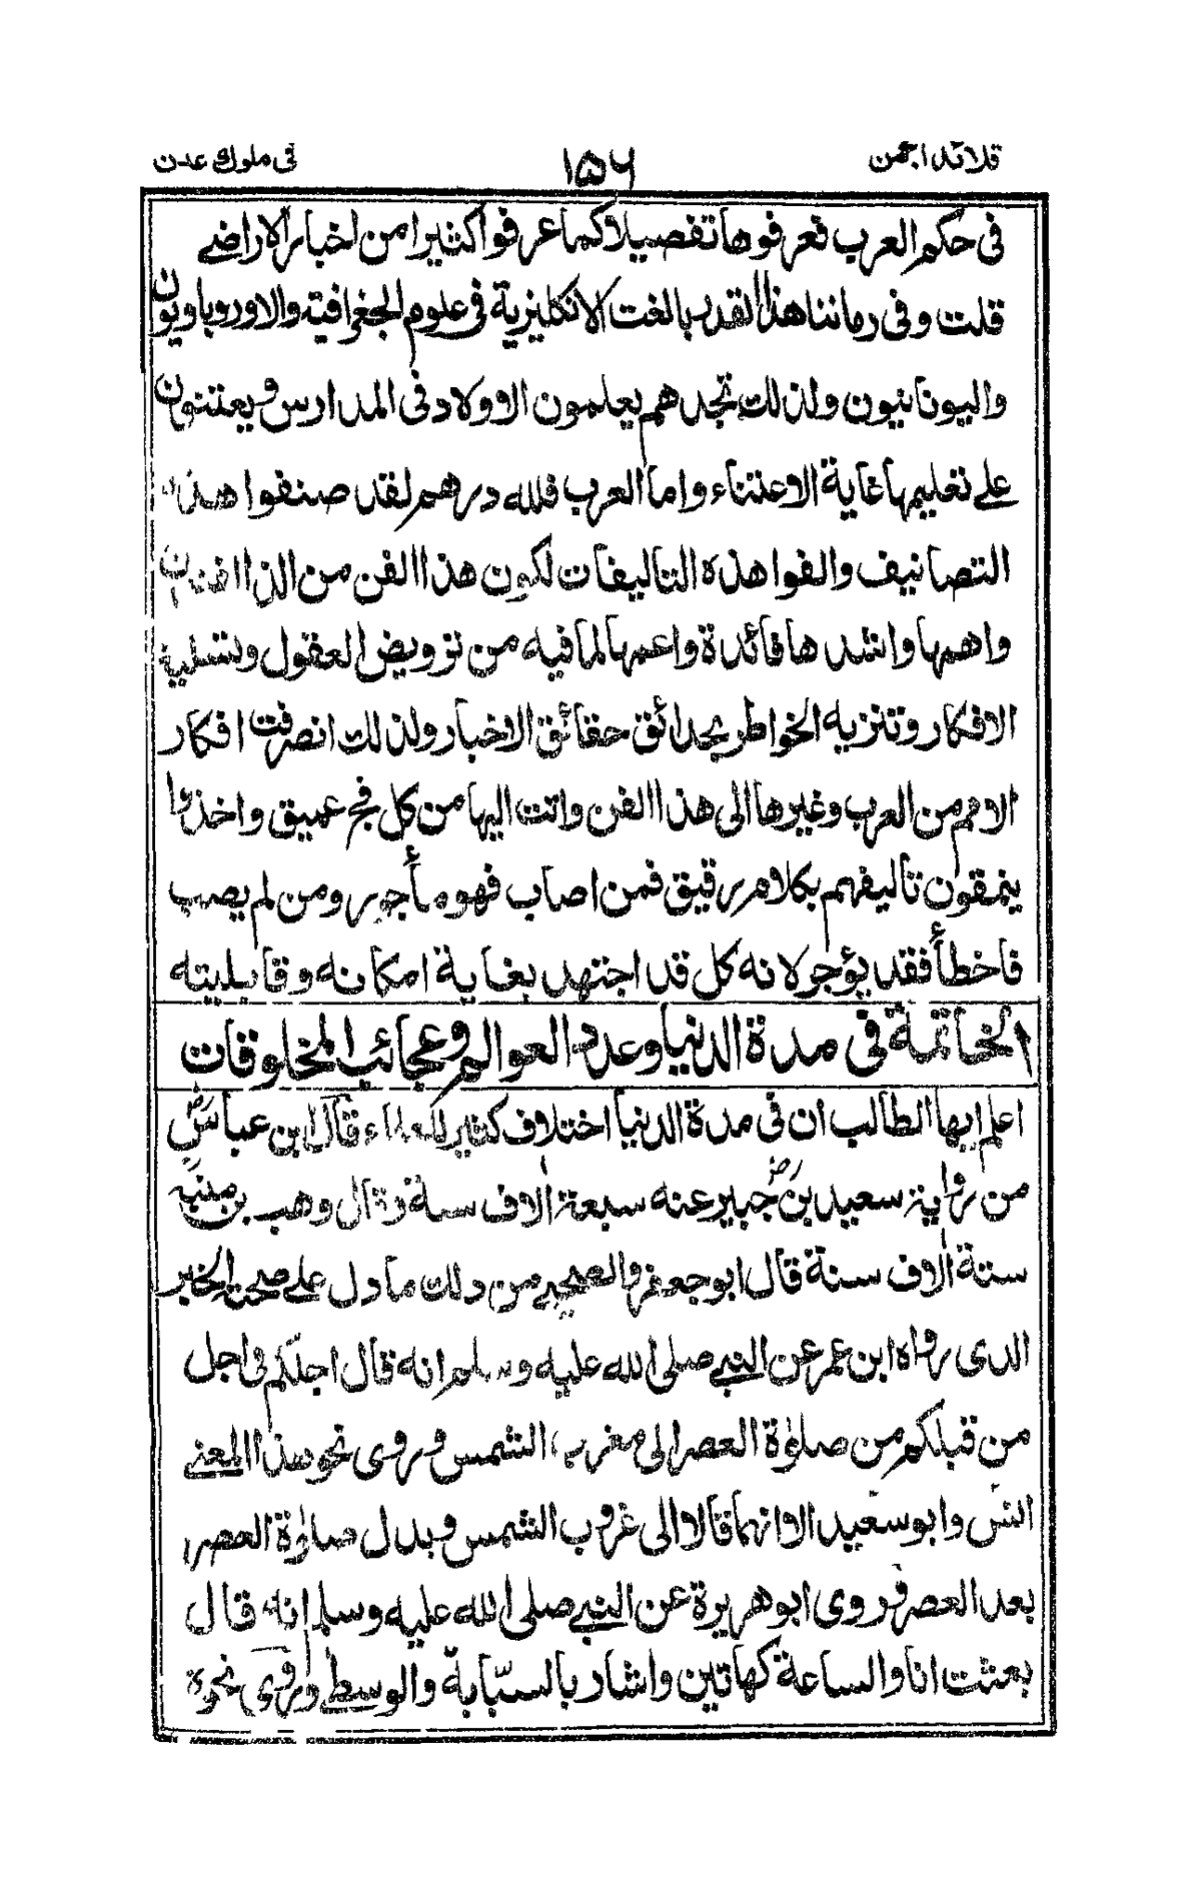 قلائد الجمن ١٥٦ في ملوك عدن
في حكم العرب فعرفوها تفصيلا كما عرفوا كثيرا من اخبار الاراضي
قلت وفي زماننا هذا لقد بالغت الانكليزية في علوم الجغرافية والاوروباويون
واليونانيون ولذلك تجدهم يعلمون الاولاد في المدارس ويعتنون
على تعليمها غاية الاعتناء واما العرب فلله درهم لقد صنفوا هذه
التصانيف والفوا هذه التاليفات لكون هذا الفن من الذ الفنون
واهمها واشدها فائدة واعمها لما فيه من ترويض العقول وتسلية
الافكار وتنزيه الخواطر بحدائق حقائق الاخبار ولذلك انصرفت افكار
الامم من العرب وغيرها الى هذا الفن واتت اليها من كل فج عميق واخذوا
ينمقون تأليفهم بكلام رقيق فمن اصاب فهو مأجور ومن لم يصب
فاخطأ فقد يؤجر لانه كل قد اجتهد بغاية امكانه وقابليته
الخاتمة في مدة الدنيا وعدد العوالم وعجائب المخلوقات
اعلم ايها الطالب ان في مدة الدنيا اختلاف كثير للعلماء قال ابن عباس رض
من رواية سعيد بن جبير رض عنه سبعة الاف سنة وقال وهب بن منبه
ستة الاف سنة قال ابو جعفر والصحيح من ذلك ما دل على صحة الخبر
الذي رواه ابن عمر عن النبي صلى الله عليه وسلم انه قال اجلكم في اجل
من قبلكم من صلوة العصر الى مغرب الشمس وروى نحو هذا المعنى
انس وابو سعيد الا انهما قالا الى غروب الشمس وبدل صلوة العصر
بعد العصر وروى ابو هريرة عن النبي صلى الله عليه وسلم انه قال
بعثت انا والساعة كهاتين واشار بالسبّابة والوسطى وروى نحوه